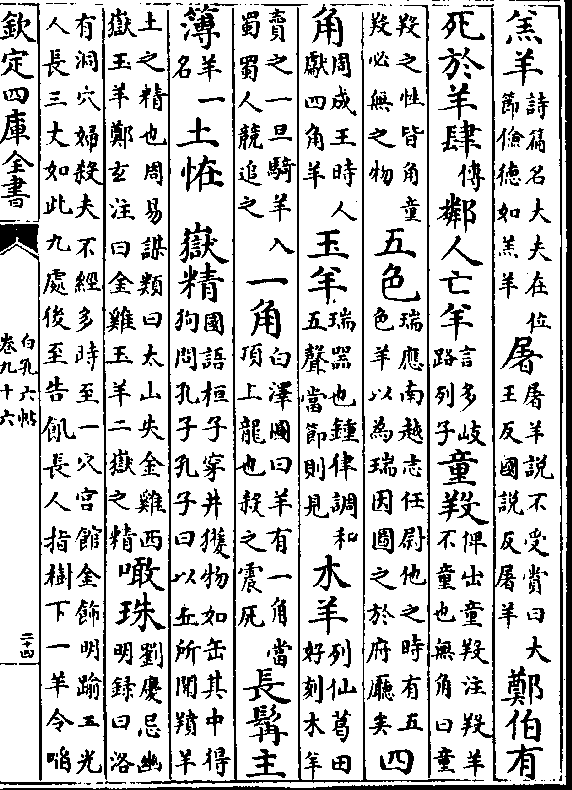 羔羊詩篇名大夫在位節儉德如羔羊屠屠羊説不受賞曰大王反國説反屠羊鄭伯有
死於羊肆傳鄰人亡羊言多岐路列子童羖俾出童羖注羖羊不童也無角曰童
羖之性皆角童羖必無之物五色瑞應南越志任尉他之時有五色羊以為瑞因圖之於府廳矣四
角周成王時人獻四角羊玉羊瑞器也鍾律調和五聲當節則見水羊列仙葛田好刻木羊
賣之一旦騎羊入蜀蜀人競追之一角白澤圖曰羊有一角當項上龍也殺之震死長髯主
簿羊一名土恠嶽精國語桓子穿井獲物如缶其中得狗問孔子孔子曰以丘所聞羵羊
土之精也周易謀類曰太山失金雞西嶽玉羊鄭玄注曰金雞玉羊二嶽之精噉珠劉慶忌幽明録曰洛
有洞穴婦殺夫不經多時至一穴宮館金飾明踰五光人長三丈如此九處後至告飢長人指樹下一羊令啗
欽定四庫全書
白孔六帖
卷九十六
二十四